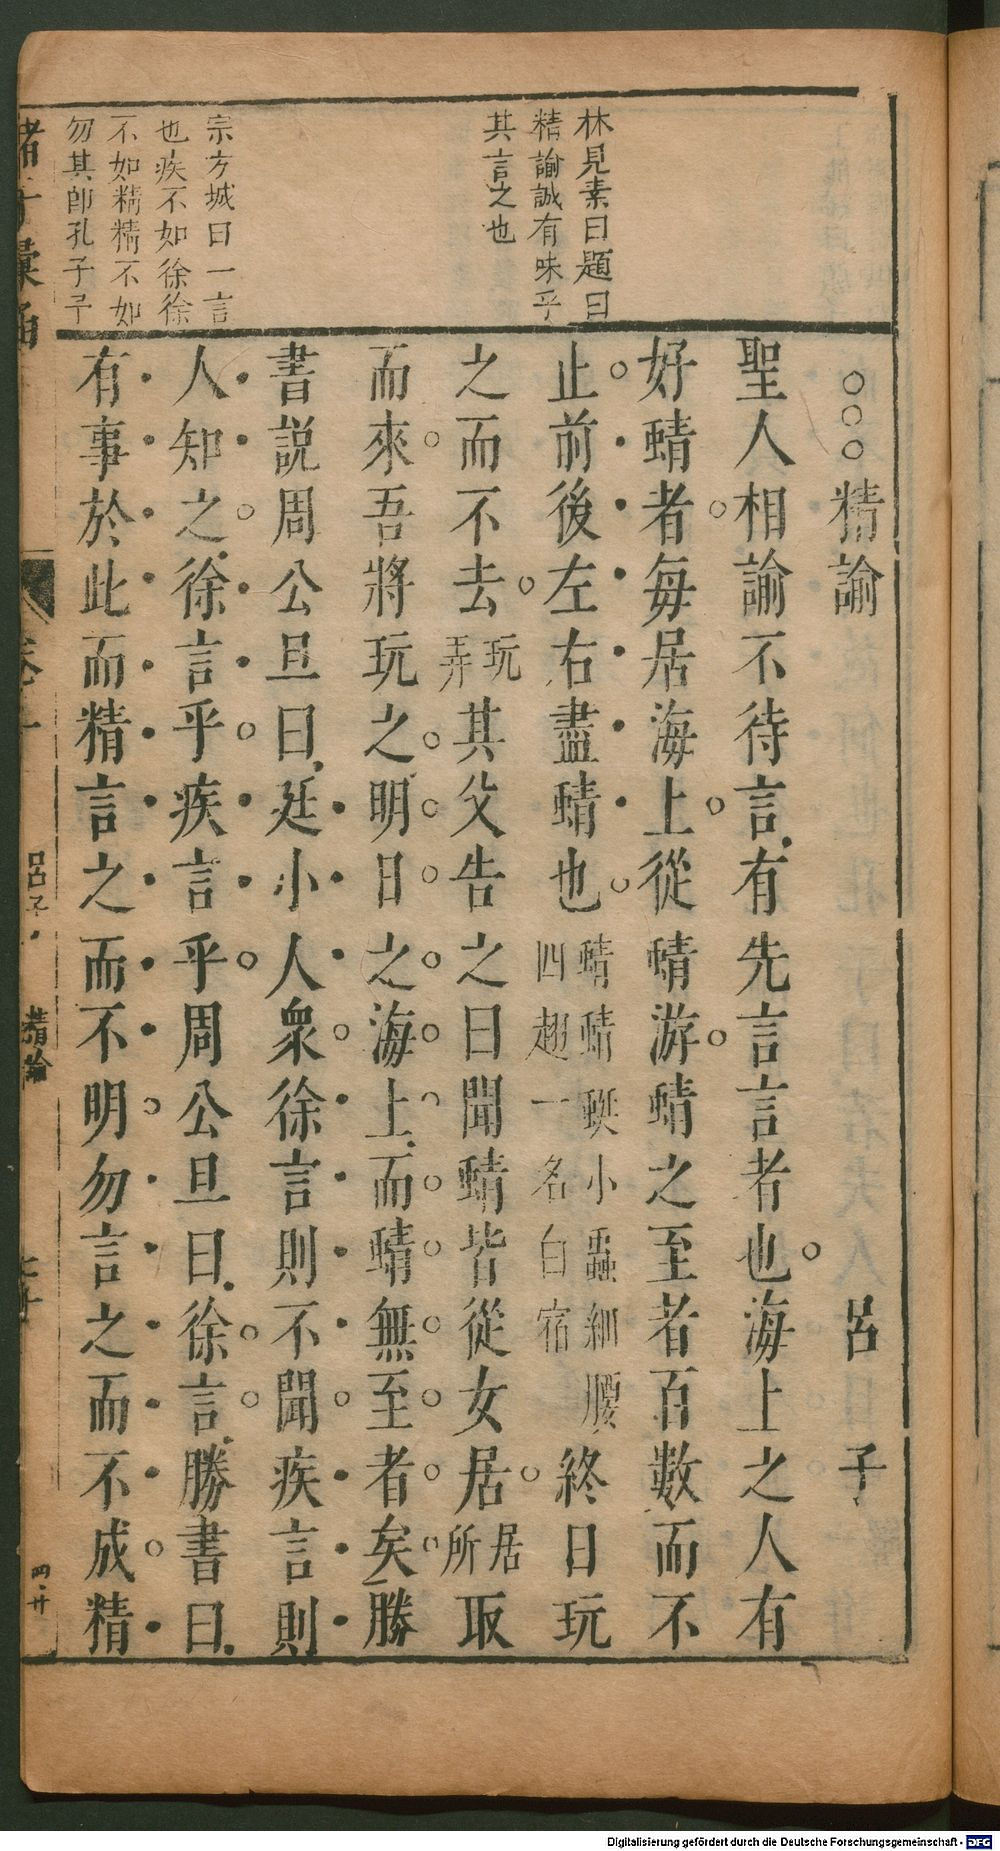 林見素曰題曰
精諭誠有味乎
其言之也
宗方城曰一言
也疾不如徐徐
不如精精不如
勿其卽孔子予
○○○精諭 呂子
聖人相諭不待言有先言言者也海上之人有
好蜻者每居海上從蜻游蜻之至者百數而不
止前後左右盡蜻也蜻蜻蜓小蟲細腰四翅一名白宿終日玩
之而不去玩弄其父告之曰聞蜻皆從女居居所取
而來吾將玩之明日之海上而蜻無至者矣勝
書説周公旦曰廷小人衆徐言則不聞疾言則
人知之徐言乎疾言乎周公旦曰徐言勝書曰
有事於此而精言之而不明勿言之而不成精
呂子
精諭
四廿
Digitalisierung gefördert durch die Deutsche Forschungsgemeinschaft - DFG